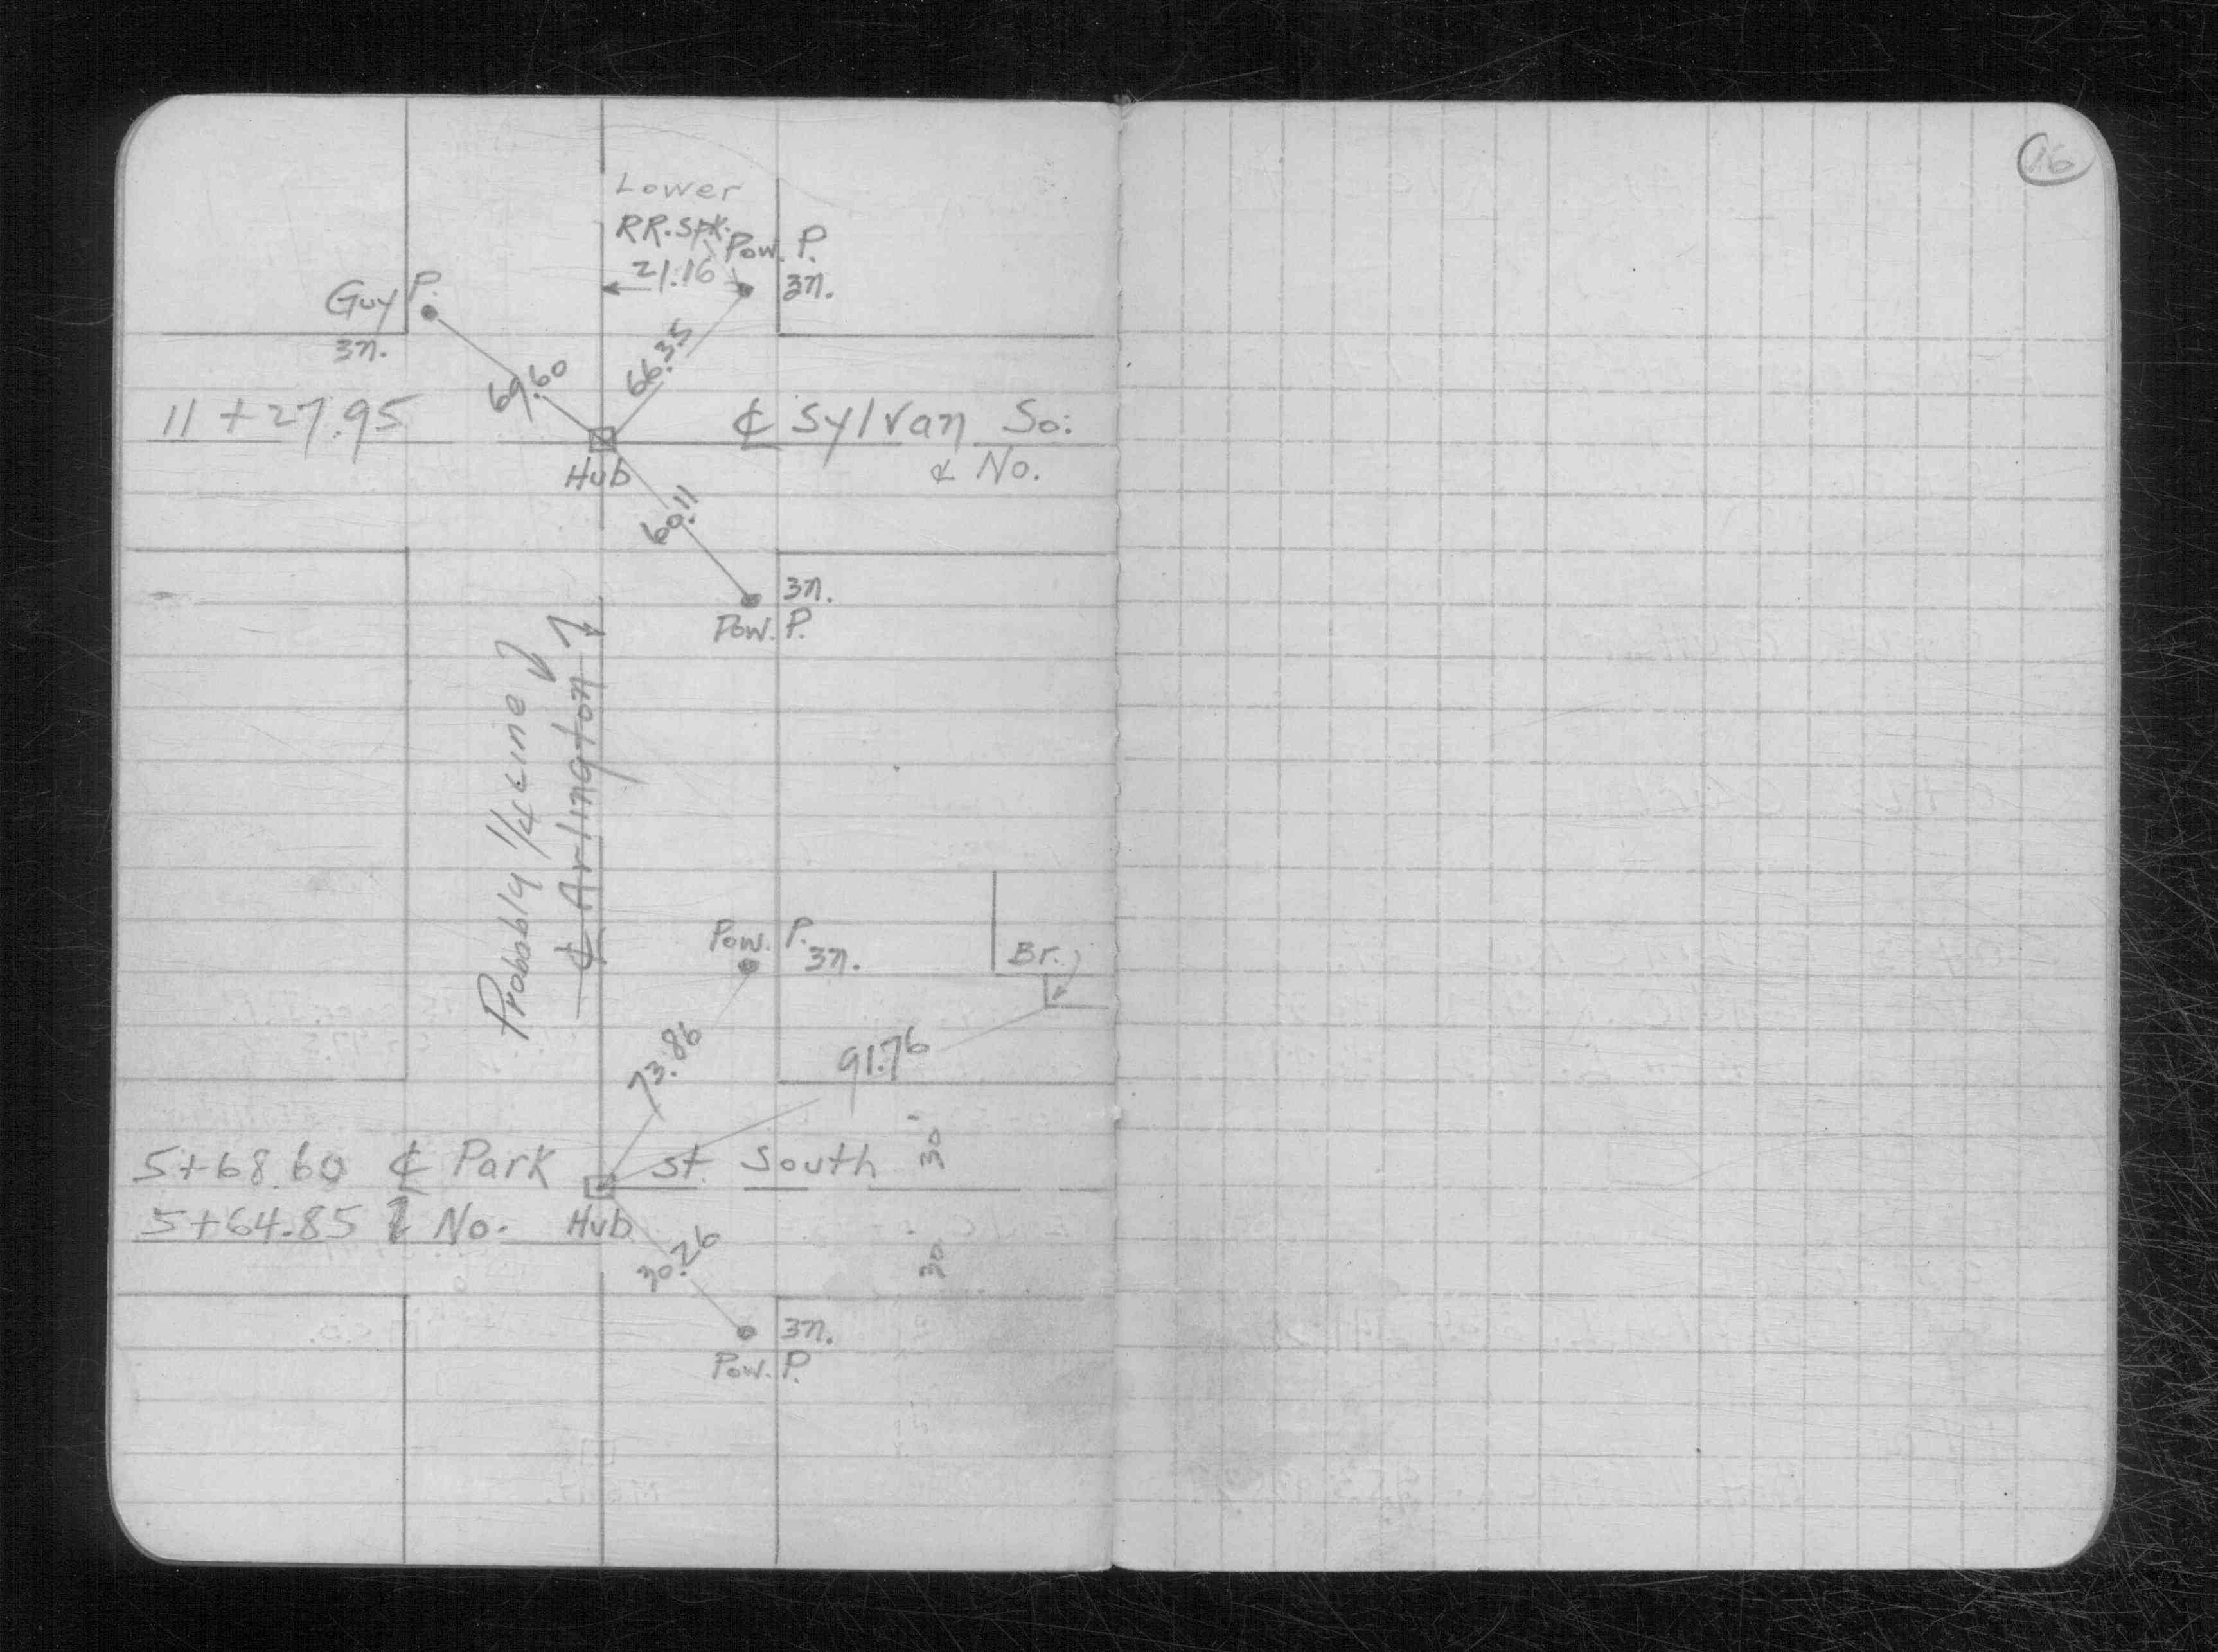 16
Lower
RR. Spk.
Pow. P.
21.16
3n.
Guy P.
3n.
69.60
66.35
11 + 27.95
℄ Sylvan So.
& No.
Hub
60.11
3n.
Pow. P.
Probably 1/4 Line
℄ Arlington
Pow. P.
3n.
Br.
73.86
91.76
5+68.60 ℄ Park St. South
30'
5+64.85 ℄ No.
Hub
30.26
30
3n.
Pow. P.